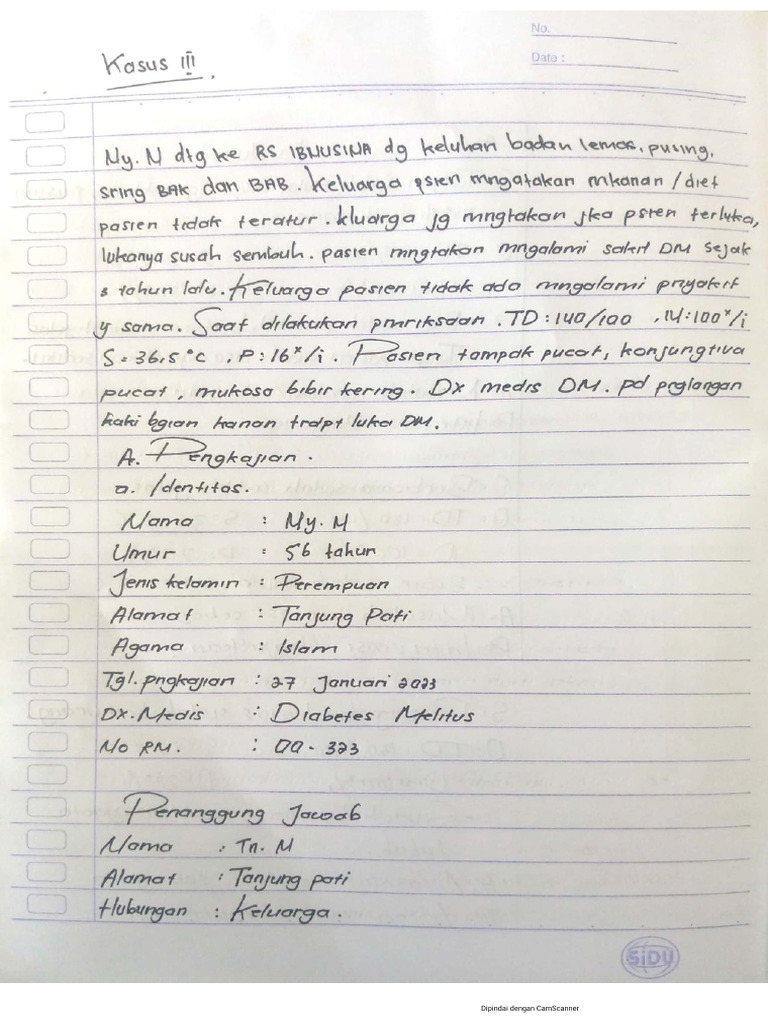 No.
Date :
Kasus III
Ny. N dtg ke RS IBNUSINA dg keluhan badan lemas, pusing,
sring BAK dan BAB. Keluarga psien mngatakan mkanan / diet
pasien tidak teratur. kluarga jg mngtakan jka psien terluka,
lukanya susah sembuh. pasien mngtakan mngalami sakit DM sejak
tahun lalu. Keluarga pasien tidak ada mngalami pnyakit
y sama. Saat dilakukan pmriksaan. TD : 140/100 , N : 100 x/i
S = 36,5 °C , P : 16 x/i . Pasien tampak pucat, konjungtiva
pucat, mukosa bibir kering. Dx medis DM. pd prglangan
kaki bgian kanan trdpt luka DM.
A. Pengkajian .
a. Identitas.
Nama : Ny. N
Umur : 56 tahun
Jenis kelamin : Perempuan
Alamat : Tanjung Pati
Agama : Islam
Tgl. pngkajian : 27 Januari 2023
DX. Medis : Diabetes Melitus
No RM. : 00 - 323
Penanggung Jawab
Nama : Tn. M
Alamat : Tanjung pati
Hubungan : Keluarga .
SiDU
Dipindai dengan CamScanner